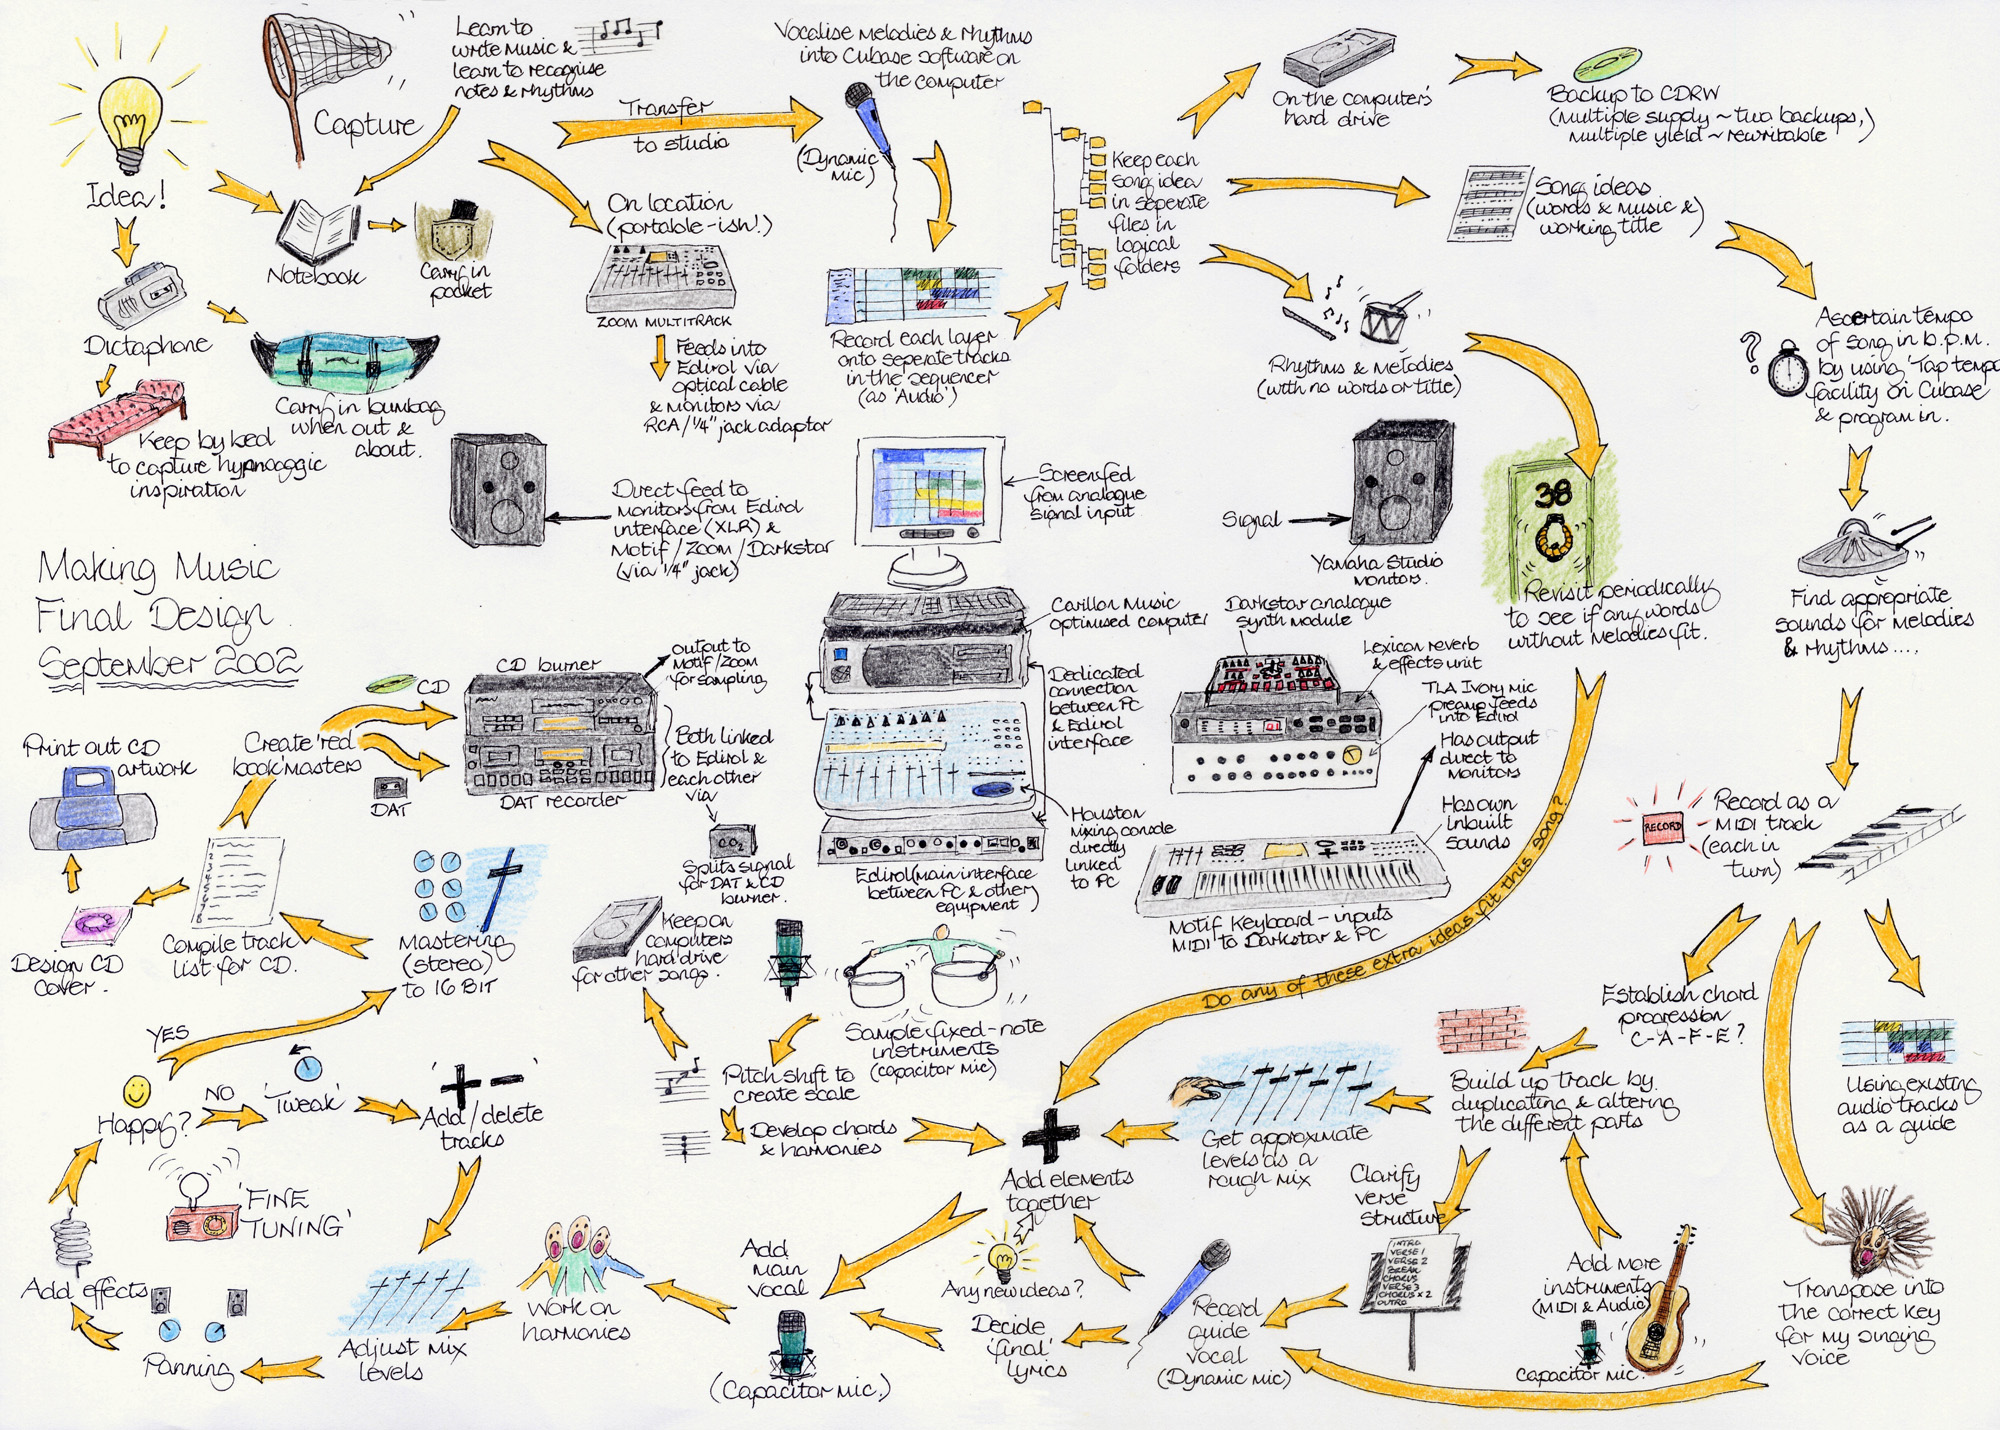 Learn to
write music &
learn to recognise
notes & rhythms
Capture
Idea!
Notebook
Carry in
pocket
Dictaphone
Carry in bumbag
when out &
about.
Keep by bed
to capture hypnogogic
inspiration
Transfer
to studio
On location
(portable-ish!)
ZOOM MULTITRACK
Feeds into
Edirol via
optical cable
& monitors via
RCA/¼" jack adaptor
Vocalise melodies & rhythms
into Cubase software on
the computer
(Dynamic
mic)
Record each layer
onto seperate tracks
in the sequencer
(as 'Audio')
Keep each
song idea
in seperate
files in
logical
folders
On the computer's
hard drive
Backup to CDRW
(multiple supply ~ two backups,
multiple yield ~ rewritable)
Song ideas
(words & music &
working title)
Rhythms & melodies
(with no words or title)
?
Ascertain tempo
of song in b.p.m.
by using 'Tap tempo'
facility on Cubase
& program in.
Find appropriate
sounds for melodies
& rhythms....
38
Revisit periodically
to see if any words
without melodies fit.
Do any of these extra ideas fit this song?
Making Music
Final Design
September 2002
Direct feed to
monitors from Edirol
interface (XLR) &
Motif/Zoom/Darkstar
(via ¼" jack)
Screen fed
from analogue
signal input
Signal
Yamaha Studio
monitors.
Carillon Music
optimised computer
Dedicated
connection
between PC
& Edirol
interface
Houston
mixing console
directly
linked
to PC
Edirol (main interface
between PC & other
equipment)
Darkstar analogue
synth module
Lexicon reverb
& effects unit
TLA Ivory mic
preamp feeds
into Edirol
Has output
direct to
monitors
Has own
inbuilt
sounds
Motif Keyboard - inputs
MIDI to Darkstar & PC
CD burner
output to
Motif/Zoom
for sampling
Both linked
to Edirol &
each other
via
CO2
Splits signal
for DAT & CD
burner.
DAT recorder
CD
DAT
Create 'red
book' masters
Print out CD
artwork
Design CD
cover.
Compile track
list for CD.
Mastering
(stereo)
to 16 BIT
YES
Happy?
NO
'Tweak'
'+ -'
Add/delete
tracks
'FINE
TUNING'
Add effects
Panning
Adjust mix
levels
Work on
harmonies
Add
main
vocal
(Capacitor mic.)
Keep on
computers
hard drive
for other songs.
Sample fixed-note
instruments
(capacitor mic)
Pitch shift to
create scale
Develop chords
& harmonies
Add elements
together
Any new ideas?
Decide
'final'
lyrics
Record
guide
vocal
(Dynamic mic)
Get approximate
levels as a
rough mix
Clarify
verse
structure
INTRO
VERSE 1
VERSE 2
BREAK
CHORUS
VERSE 3
CHORUS x 2
OUTRO
Build up track by
duplicating & altering
the different parts
Add more
instruments
(MIDI & Audio)
capacitor mic.
Establish chord
progression
C-A-F-E?
RECORD
Record as a
MIDI track
(each in
turn)
Using existing
audio tracks
as a guide
Transpose into
the correct key
for my singing
voice